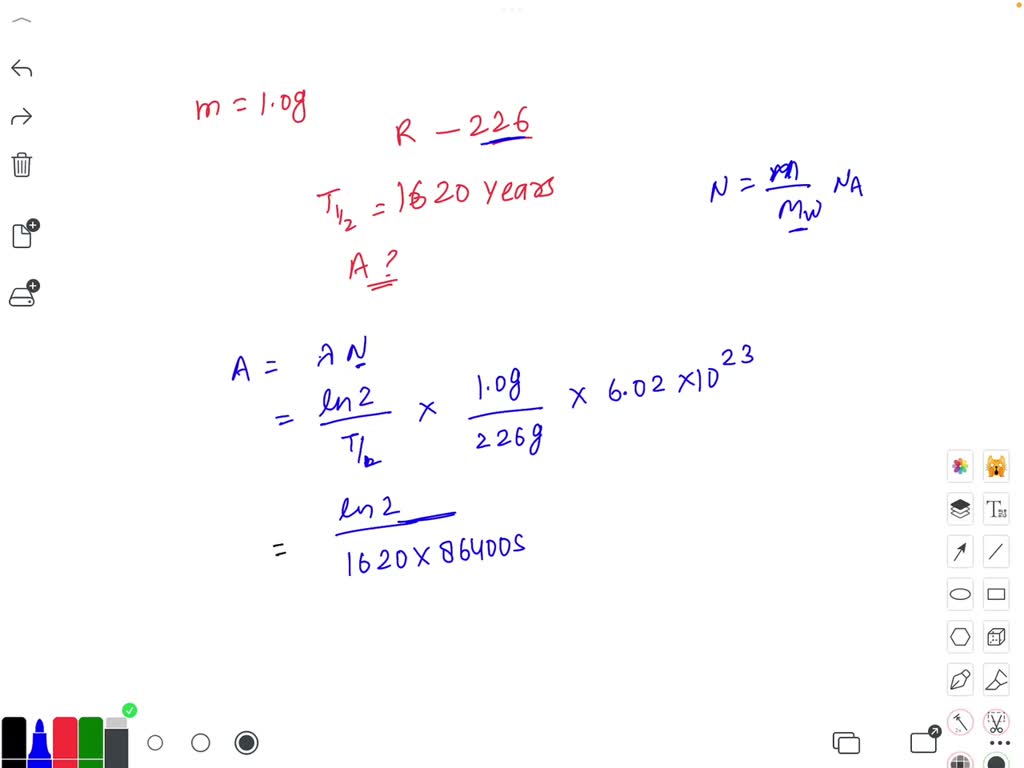 m = 1.0g
R - 226
T1/2 = 1620 years
A ?
N = m/Mw NA
A = λN
= ln2/T1/2 × 1.0g/226g × 6.02 × 10^23
= ln2/1620 × 86400s